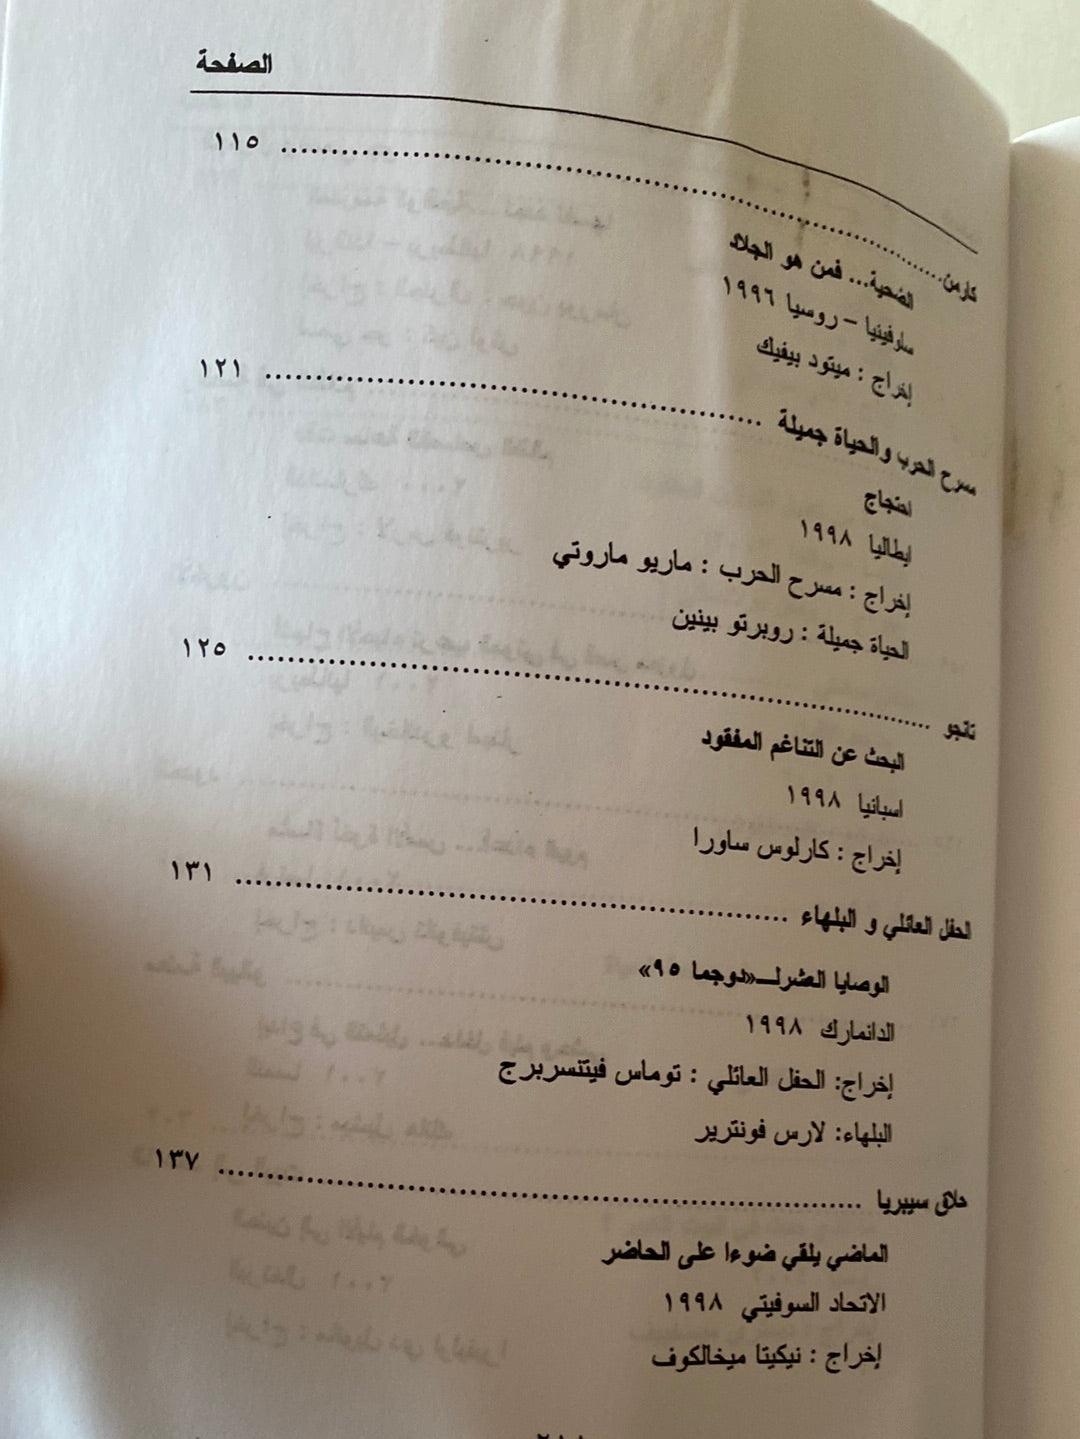 الصفحة
كارمن ........................ ١١٥
الضحية... فمن هو الجلاد
سلوفينيا – روسيا ١٩٩٦
إخراج : ميتود بيفيك
مسرح الحرب والحياة جميلة ........................ ١٢١
احتجاج
إيطاليا ١٩٩٨
إخراج : مسرح الحرب : ماريو ماروتي
الحياة جميلة : روبرتو بينين
تانجو ........................ ١٢٥
البحث عن التناغم المفقود
اسبانيا ١٩٩٨
إخراج : كارلوس ساورا
الحفل العائلي و البلهاء ........................ ١٣١
الوصايا العشرلـ«دوجما ٩٥»
الدانمارك ١٩٩٨
إخراج: الحفل العائلي : توماس فيتنسربرج
البلهاء: لارس فونترير
حلاق سيبريا ........................ ١٣٧
الماضي يلقي ضوءا على الحاضر
الاتحاد السوفيتي ١٩٩٨
إخراج : نيكيتا ميخالكوف